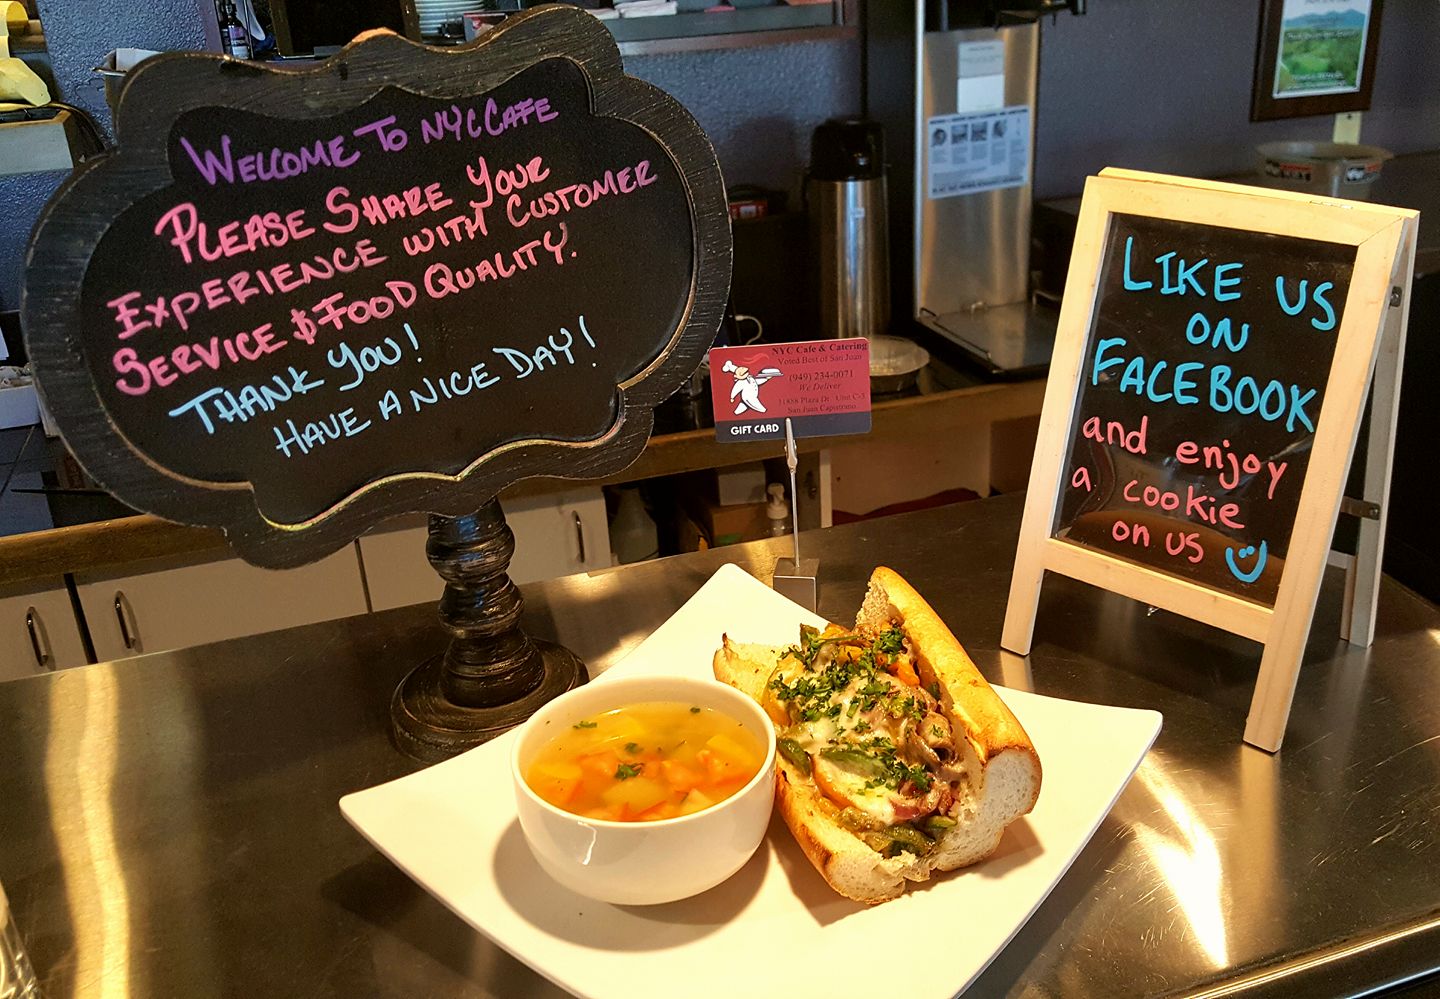 WELCOME TO NYC CAFE
PLEASE SHARE YOUR
EXPERIENCE WITH CUSTOMER
SERVICE & FOOD QUALITY.
THANK YOU!
HAVE A NICE DAY!
NYC Cafe & Catering
Voted Best of San Juan
(949) 234-0071
We Deliver
31888 Plaza Dr. Unit C-3
San Juan Capistrano
GIFT CARD
LIKE US
ON
FACEBOOK
and enjoy
a cookie
on us